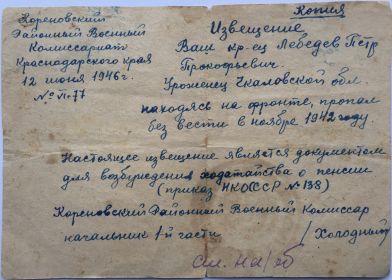 Копия
Кореновский
Районный Военный
Комиссариат
Краснодарского края
12 июня 1946 г.
№ П-77
Извещение
Ваш кр-ец Лебедев Пётр
Прокофьевич.
Уроженец Чкаловской обл
находясь на фронте, пропал
без вести в ноябре 1942 году.
Настоящее извещение является документом
для возбуждения ходатайства о пенсии
(приказ НКОСССР № 138)
Кореновский Районный Военный Комиссар
начальник 1-й части /Холодный/
См. на/об